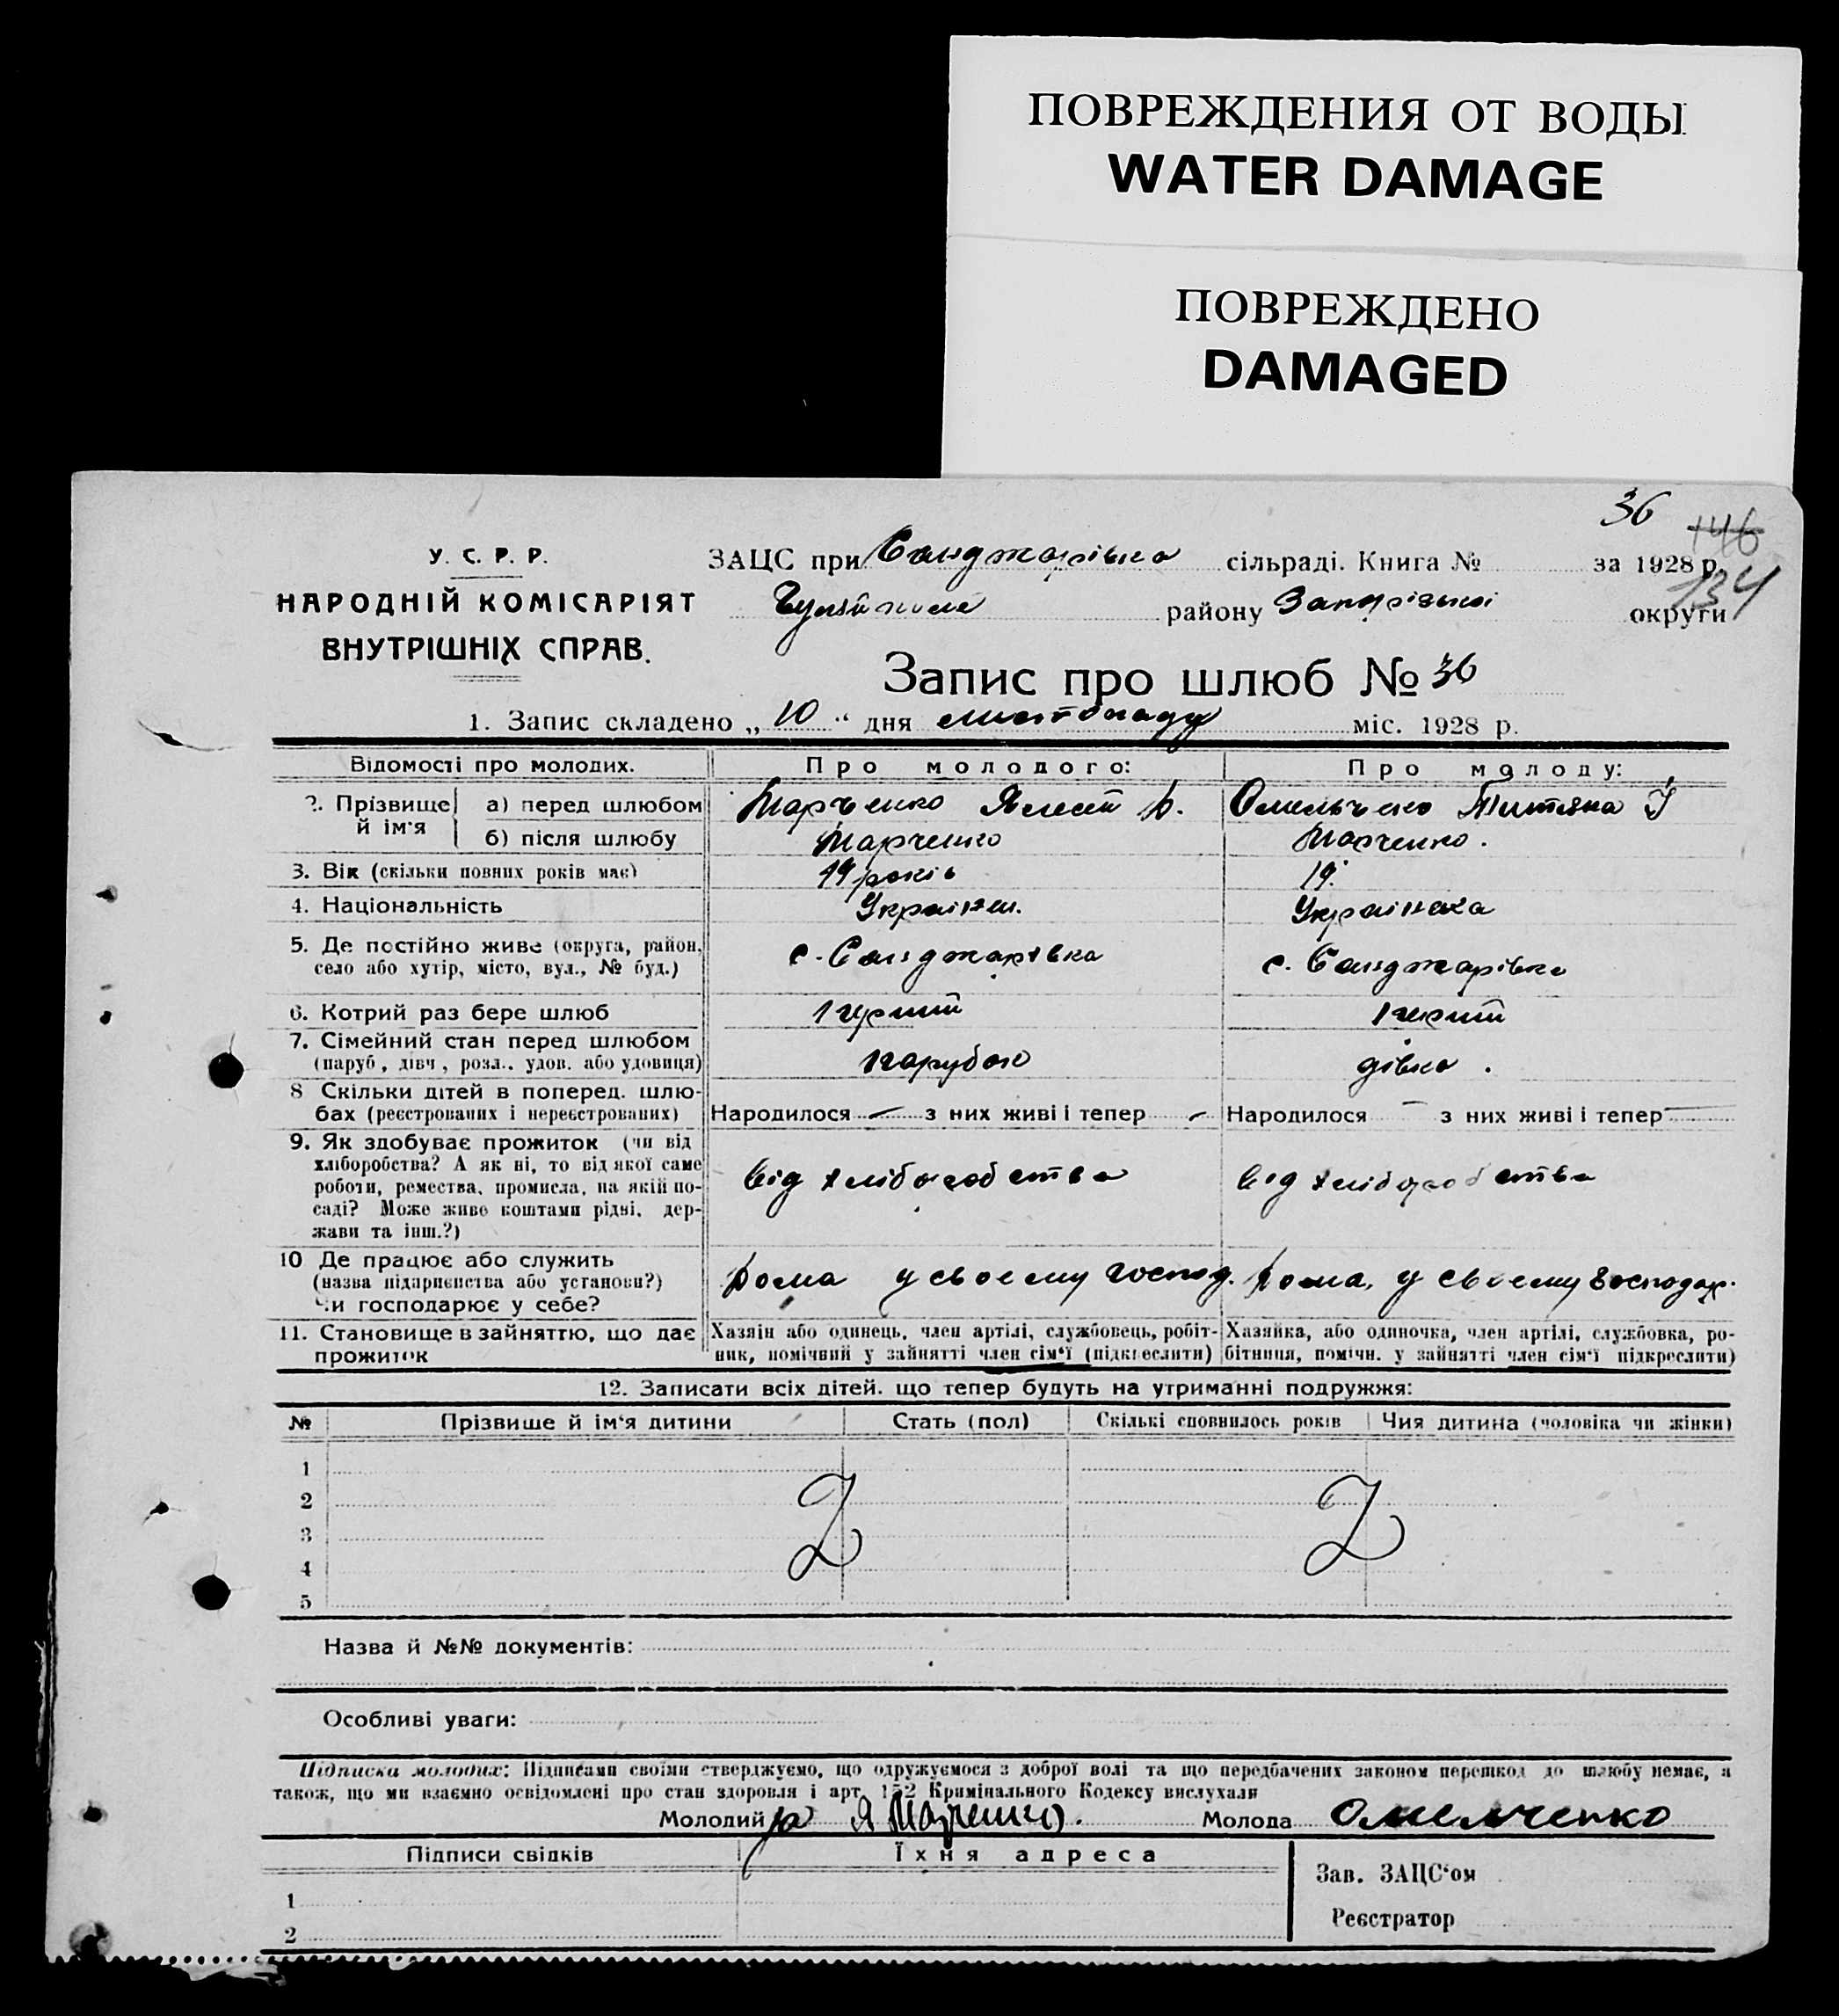 ПОВРЕЖДЕНИЯ ОТ ВОДЫ
WATER DAMAGE
ПОВРЕЖДЕНО
DAMAGED
36
146
134
У. С. Р. Р.
НАРОДНІЙ КОМІСАРІЯТ
ВНУТРІШНІХ СПРАВ.
ЗАЦС при Санджарівка сільраді. Книга № за 1928 р.
району Запорізької округи
Запис про шлюб № 36
1. Запис складено „ 10 “ дня листопаду міс. 1928 р.
Відомості про молодих. Про молодого: Про молоду:
2. Прізвище й ім'я а) перед шлюбом Марченко В. Омельченко Титяна І
б) після шлюбу Марченко Марченко.
3. Вік (скільки повних років має) 19 років 19.
4. Національність Україн. Українка
5. Де постійно живе (округа, район, с. Санджарівка с. Санджарівка
село або хутір, місто, вул., № буд.)
6. Котрий раз бере шлюб 1 1
7. Сімейний стан перед шлюбом
(паруб., дівч., розл., удов. або удовиця) парубок дівка.
8 Скільки дітей в поперед. шлю-
бах (реєстрованих і нереєстрованих) Народилося — з них живі і тепер — Народилося — з них живі і тепер —
9. Як здобуває прожиток (чи від
хліборобства? А як ні, то від якої саме
роботи, ремества, промисла, на якій по-
саді? Може живе коштами рідні, дер-
жави та інш.?)
від хліборобства від хліборобства
10 Де працює або служить
(назва підприєнства або установи?)
Чи господарює у себе?
Дома у своєму господ. Дома, у своєму господар.
11. Становище в зайняттю, що дає Хазяїн або одинець, член артілі, службовець, робіт- Хазяйка, або одиночка, член артілі, службовка, ро-
прожиток ник, помічний у зайнятті член сім'ї (підкреслити) бітниця, помічн. у зайнятті член сім'ї підкреслити)
12. Записати всіх дітей, що тепер будуть на утриманні подружжя:
№ Прізвище й ім'я дитини Стать (пол) Скількі сповнилось років Чия дитина (чоловіка чи жінки)
1
2
3
4
5
Назва й №№ документів:
Особливі уваги:
Підписка молодих: Підписами своїми стверджуємо, що одружуємося з доброї волі та що передбачених законом перешкод до шлюбу немає, а
також, що ми взаємно освідомлені про стан здоровля і арт. 152 Кримінального Кодексу вислухали
Молодий Я Марченко. Молода Омельченко
Підписи свідків Їхня адреса
Зав. ЗАЦС'ом
1
Реєстратор
2